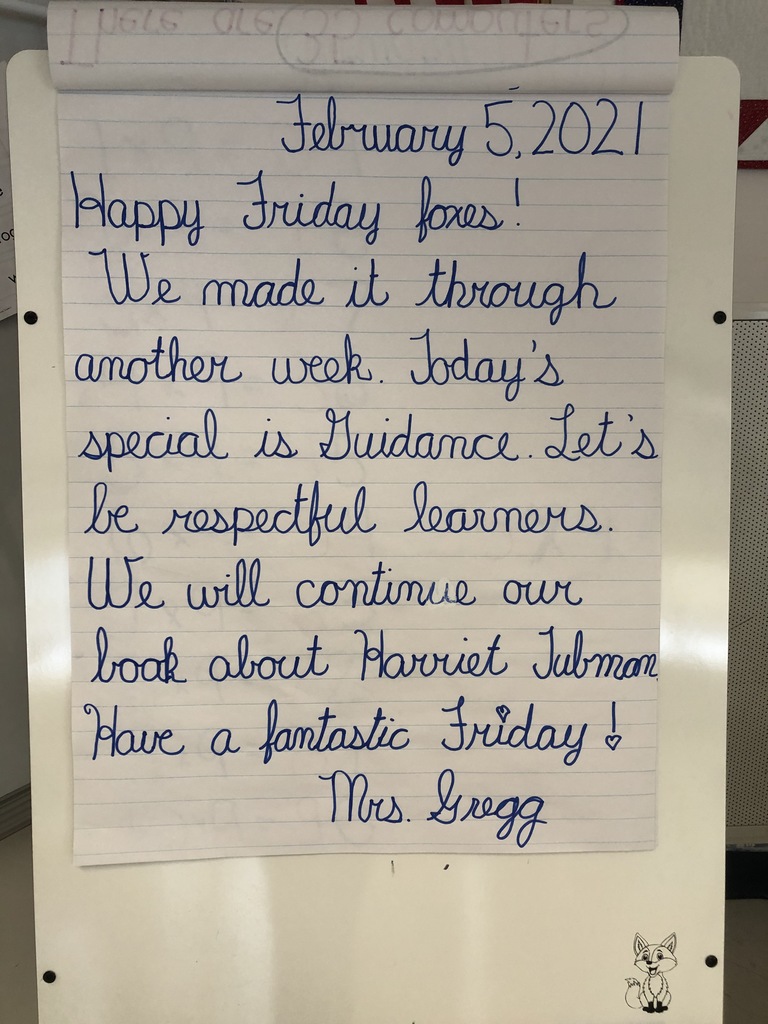 There are 35 computers
February 5, 2021
Happy Friday foxes!
We made it through
another week. Today's
special is Guidance. Let's
be respectful learners.
We will continue our
book about Harriet Tubman
Have a fantastic Friday!
Mrs. Gregg